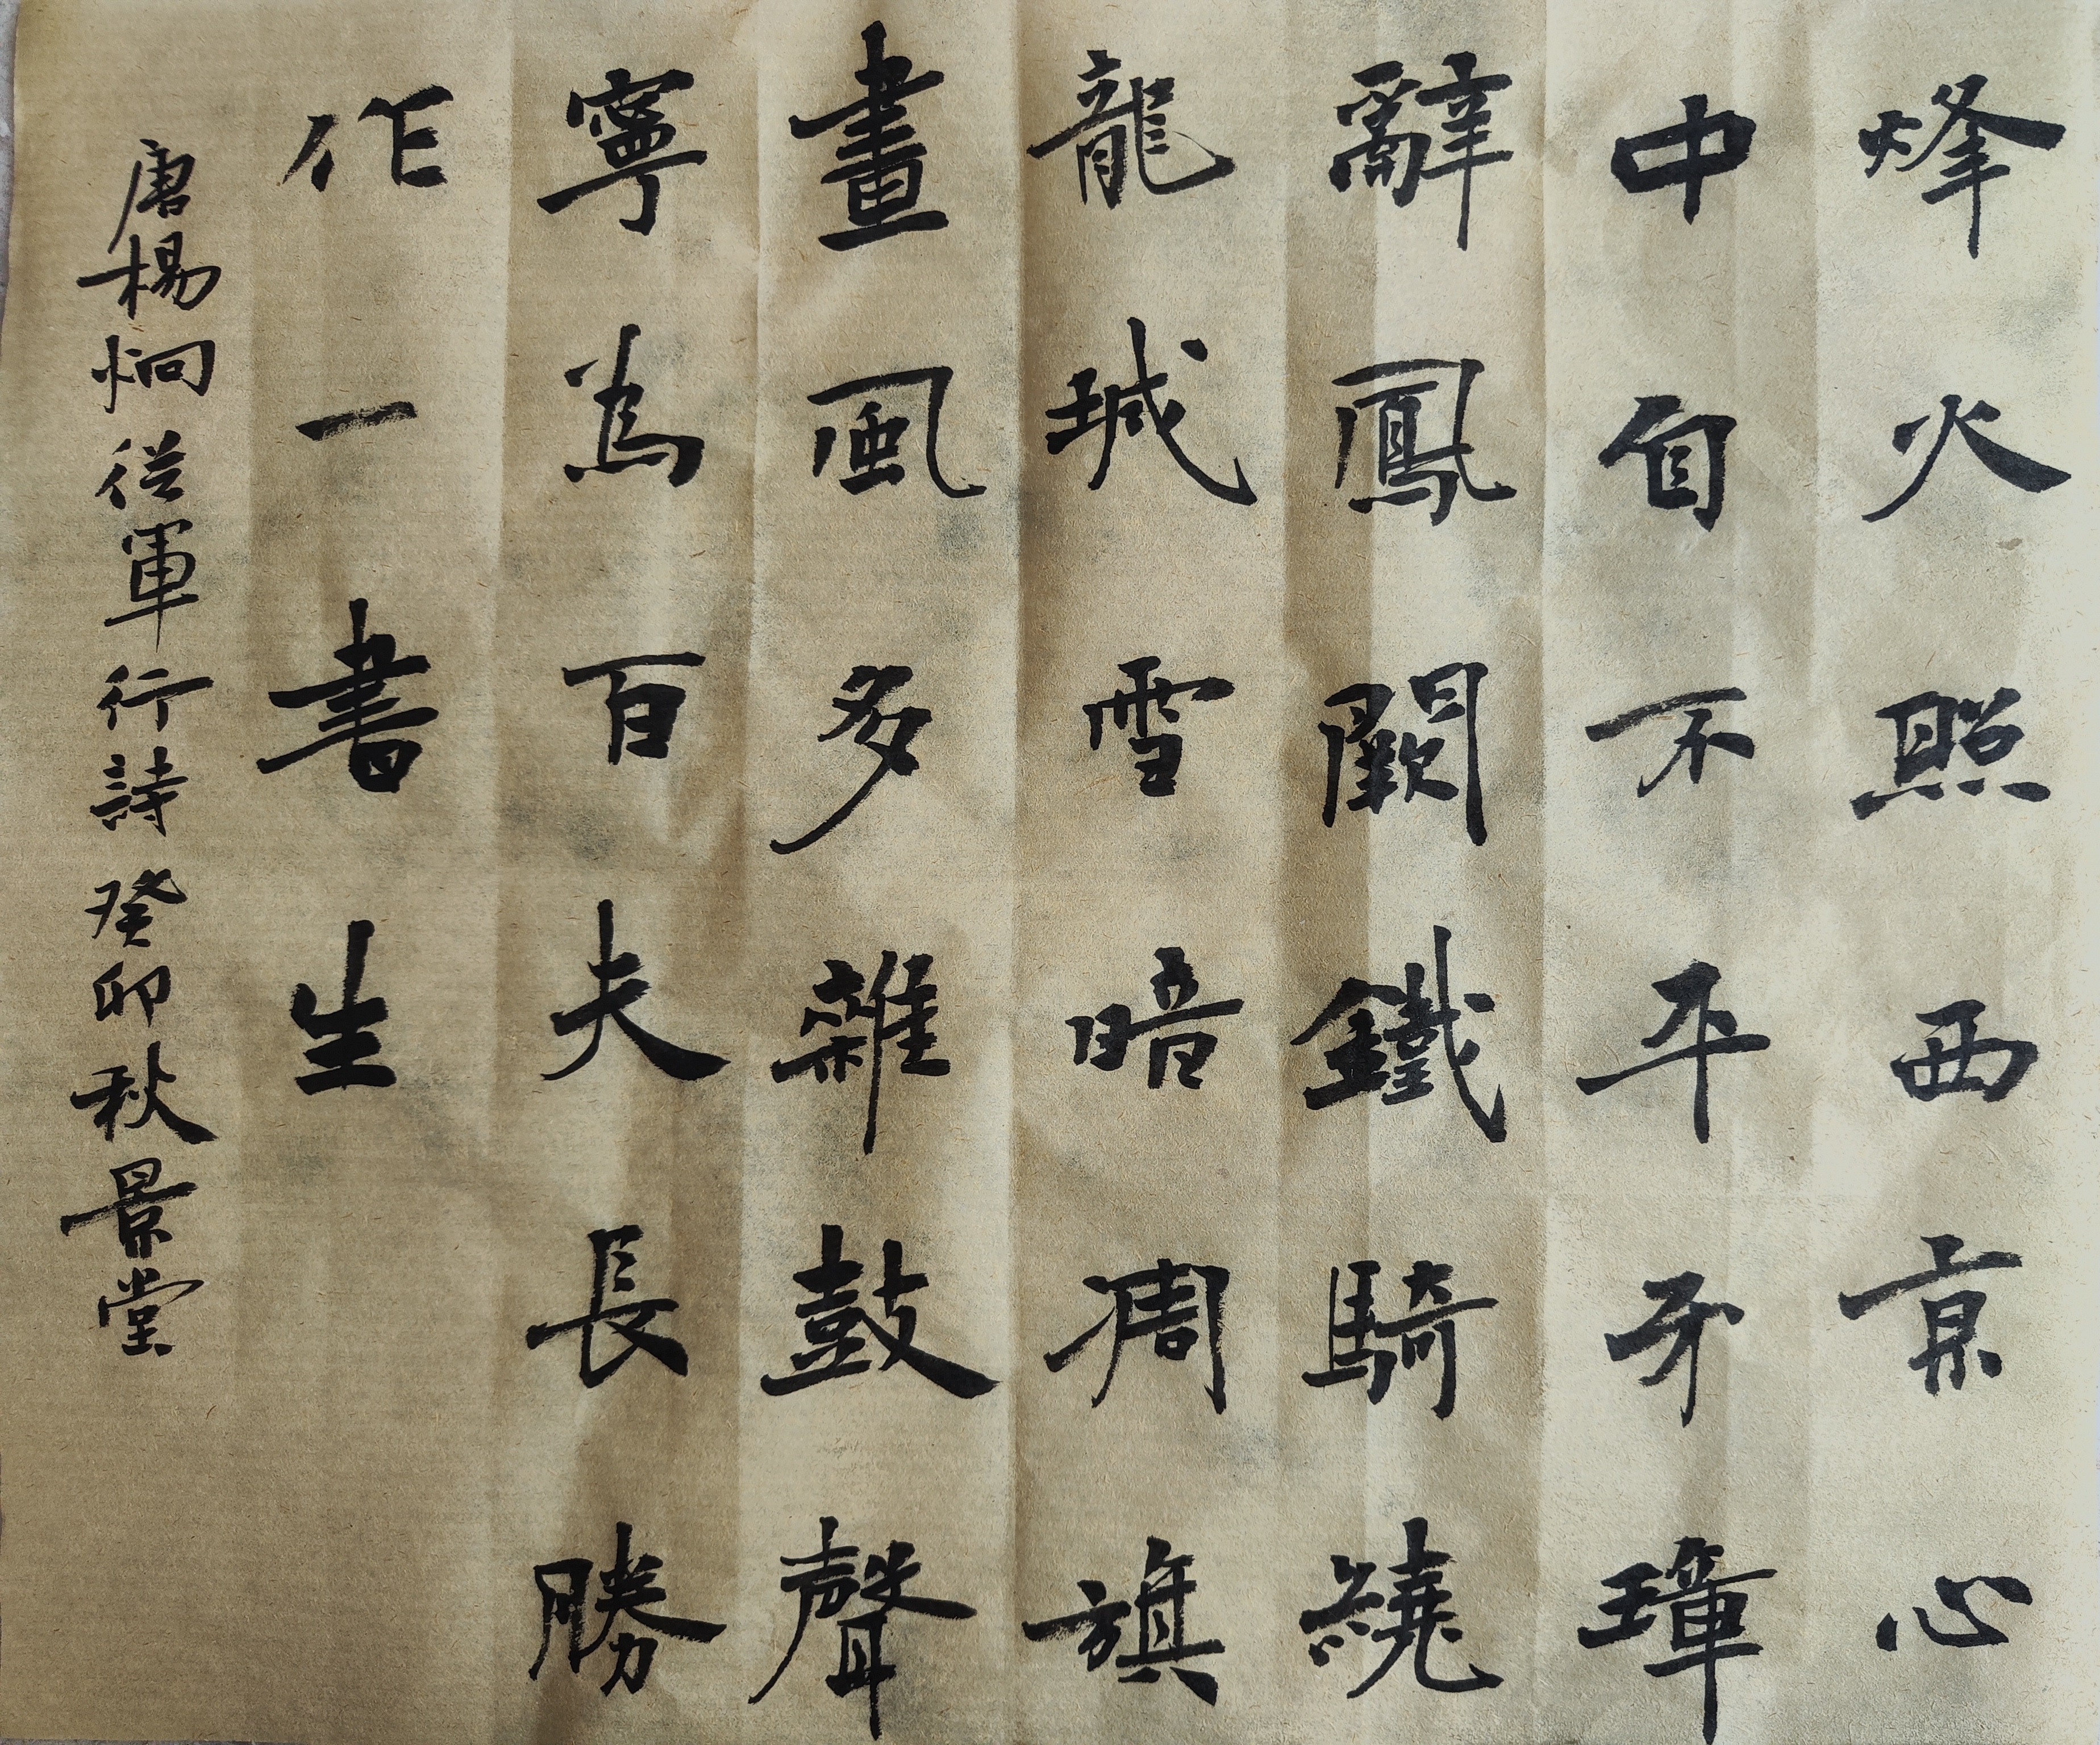 烽火照西京心
中自不平牙璋
辭鳳闕鐵騎繞
龍城雪暗凋旗
畫風多雜鼓聲
寧為百夫長勝
作一書生
唐楊炯從軍行詩癸卯秋景堂